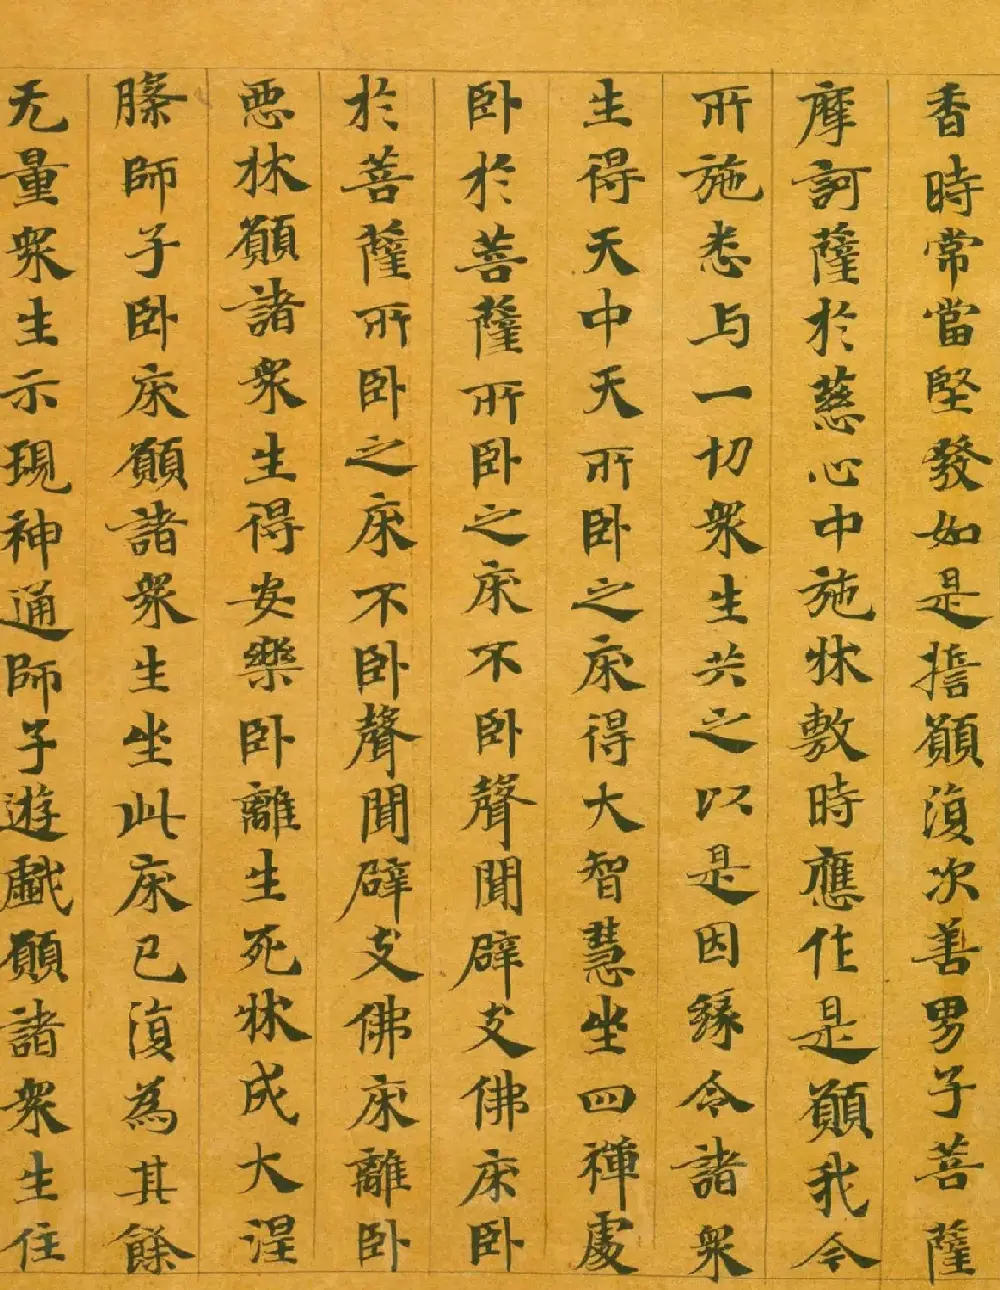 香時常當堅發如是擔願復次善男子菩薩
摩訶薩於慈心中施牀敷時應作是願我今
所施悉与一切衆生共之以是因緣令諸衆
生得天中天所卧之床得大智慧坐四禪處
卧於菩薩所卧之床不卧聲聞辟支佛床卧
於菩薩所卧之床不卧聲聞辟支佛床離卧
惡牀願諸衆生得安樂卧離生死牀成大涅
縢師子卧床願諸衆生坐此床已復為其餘
无量衆生示現神通師子遊戲願諸衆生住